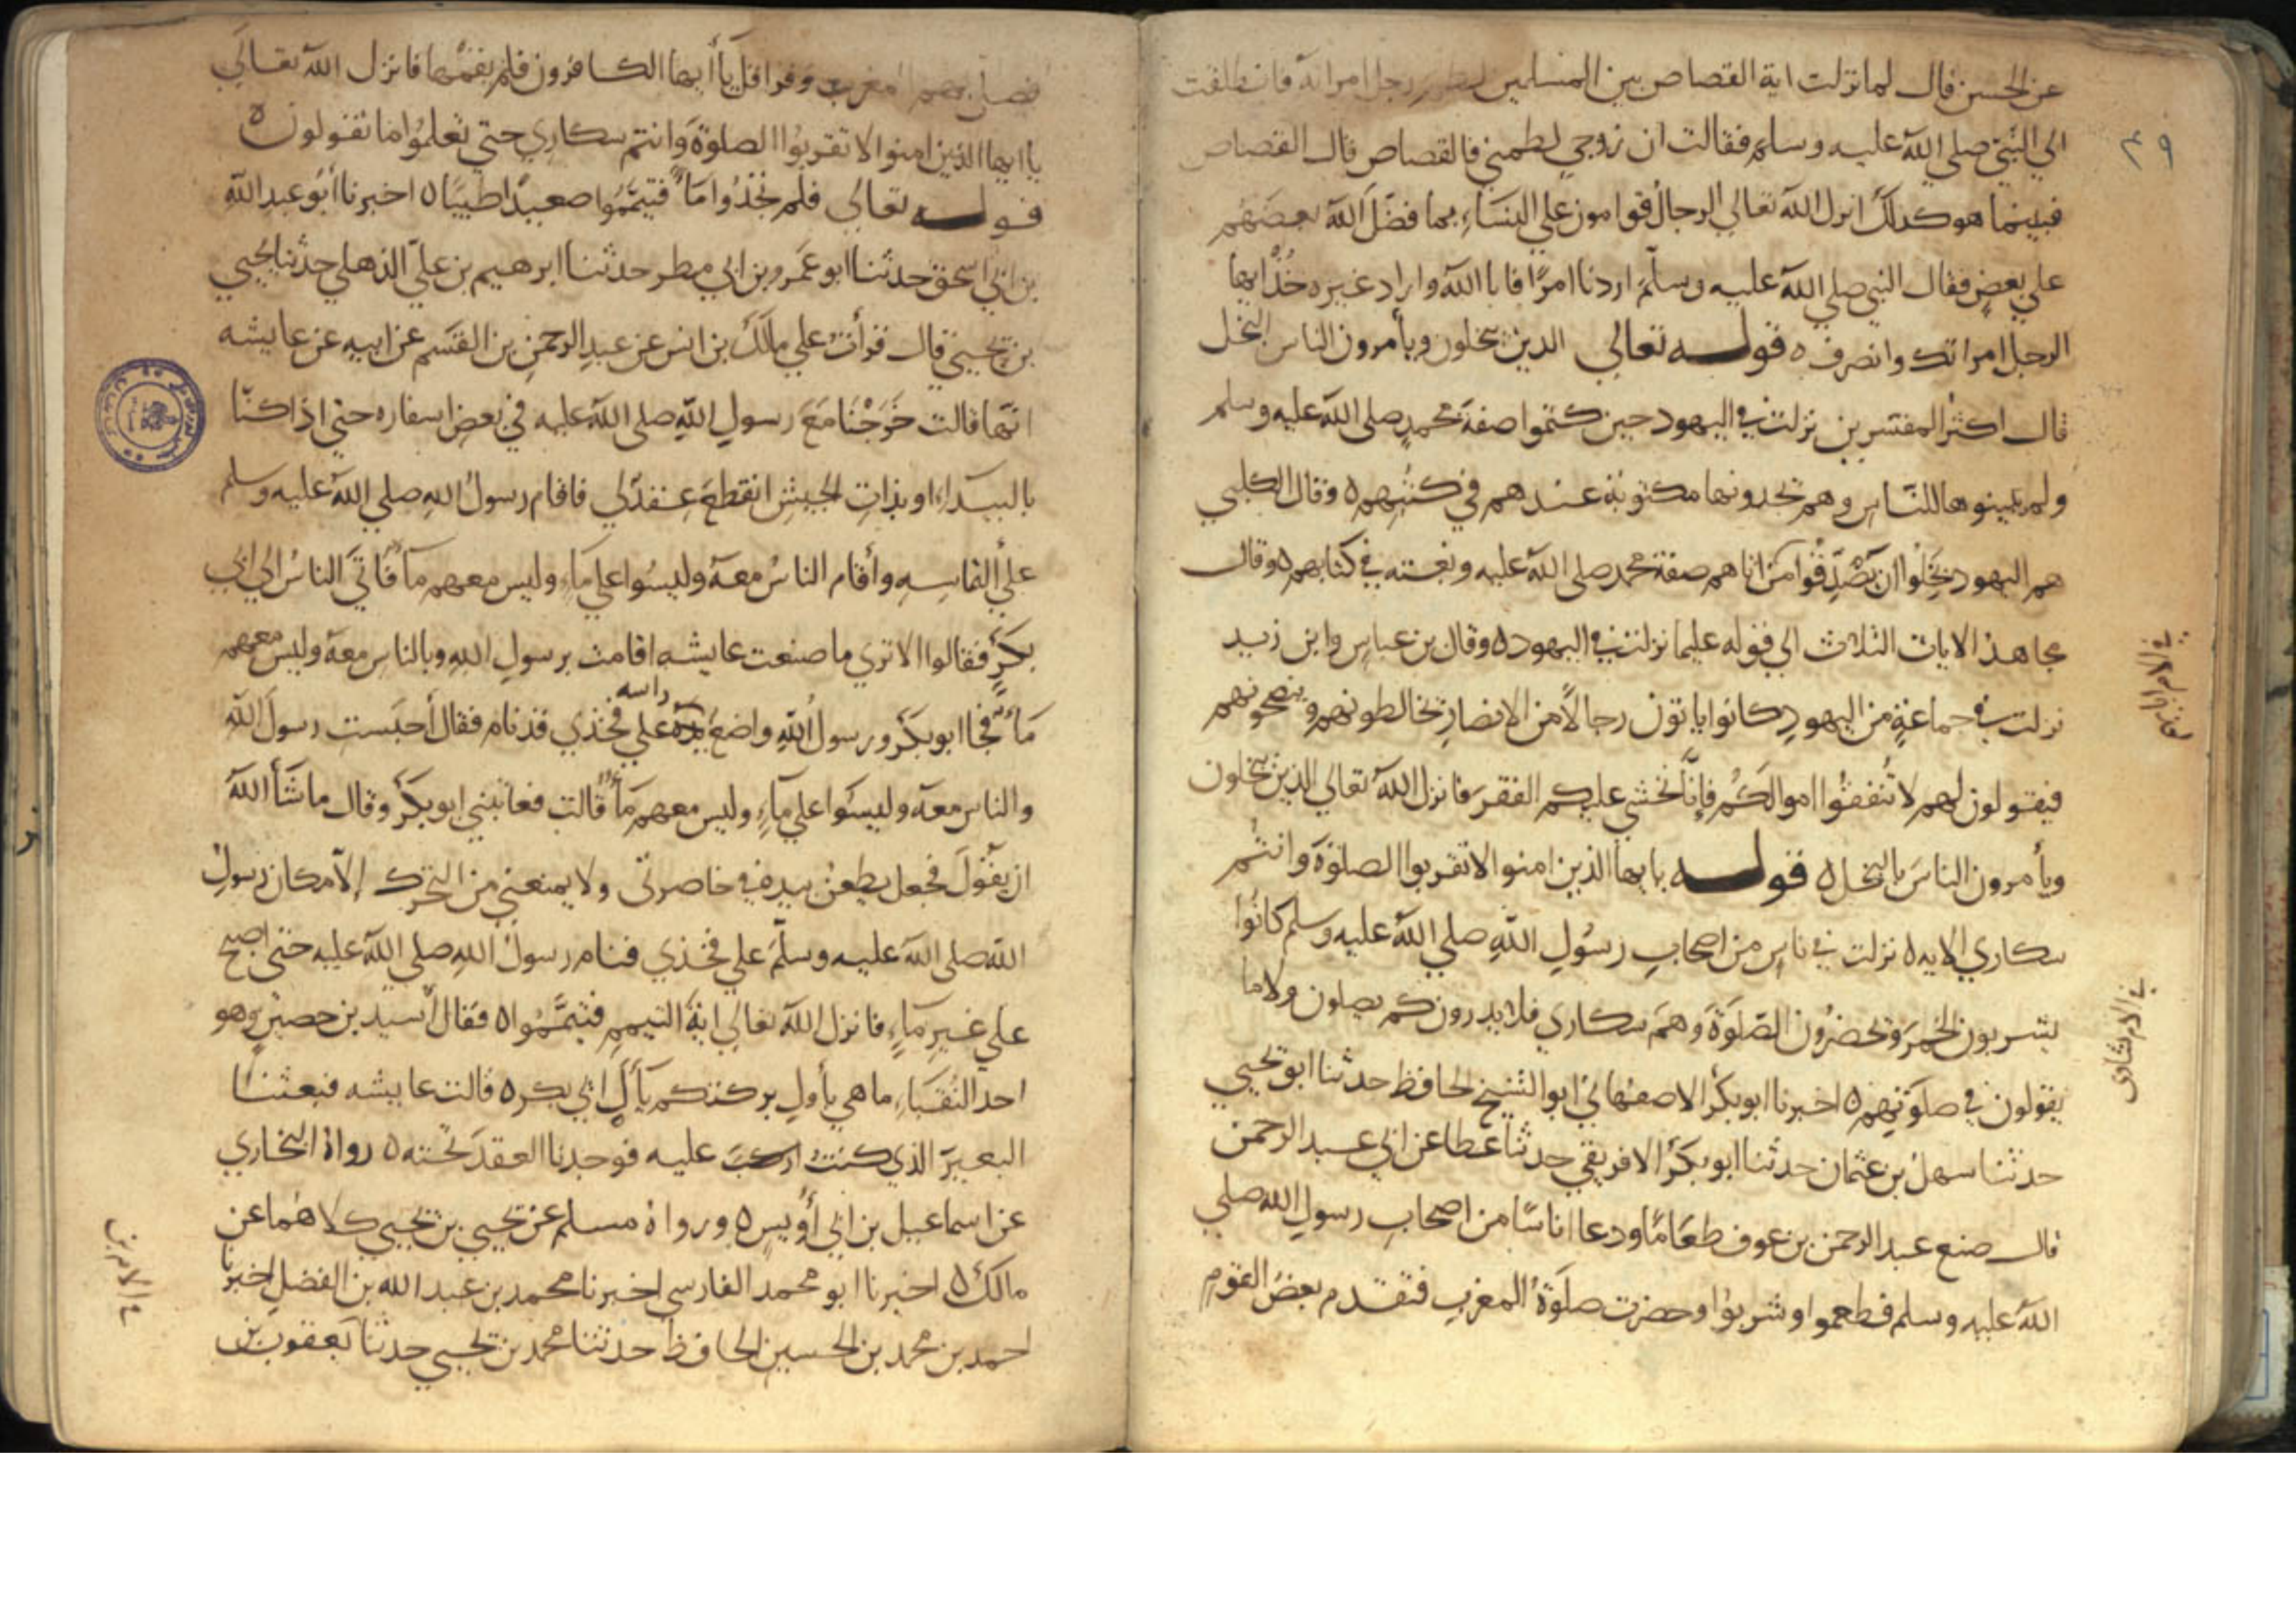 عن الحسن قال لما نزلت اية القصاص بين المسلمين لطم رجل امراته فانطلقت
الي النبي صلي الله عليه وسلم فقالت ان زوجي لطمني فالقصاص قال القصاص
فبينما هو كذلك انزل الله تعالي الرجال قوامون علي النساء بما فضل الله بعضهم
علي بعض فقال النبي صلي الله عليه وسلم اردنا امرا فابا الله واراد غيره خذ ايها
الرجل امراتك وانصرف ه قوله تعالي الذين يبخلون ويأمرون الناس بالبخل
قال اكثر المفسرين نزلت في اليهود حين كتموا صفة محمد صلي الله عليه وسلم
ولم يبينوها للناس وهم يجدونها مكتوبة عندهم في كتبهم ه وقال الكلبي
هم اليهود بخلوا ان يصدقوا من اتاهم صفة محمد صلي الله عليه ونعته في كتابهم ه وقال
مجاهد الايات الثلاث الي قوله عليما نزلت في اليهود ه وقال بن عباس وابن زيد
نزلت في جماعة من اليهود كانوا ياتون رجالا من الانصار يخالطونهم وينصحونهم
فيقولون لهم لا تنفقوا اموالكم فإنا نخشي عليكم الفقر فانزل الله تعالي الذين يبخلون
ويأمرون الناس بالبخل ه قوله يايها الذين امنوا لا تقربوا الصلوة وانتم
سكاري الايه ه نزلت في ناس من اصحاب رسول الله صلي الله عليه وسلم كانوا
يشربون الخمر ويحضرون الصلوة وهم سكاري فلا يدرون كم يصلون ولا ما
يقولون في صلوتهم ه اخبرنا ابو بكر الاصفهاني ابو الشيخ الحافظ حدثنا ابو يحيي
حدثنا سهل بن عثمان حدثنا ابو بكر الافريقي حدثنا عطا عن ابي عبد الرحمن
قال صنع عبد الرحمن بن عوف طعاما ودعا اناسا من اصحاب رسول الله صلي
الله عليه وسلم فطعموا وشربوا وحضرت صلوة المغرب فتقدم بعض القوم
٤٩
فصلي بهم المغرب وقرا قل يا أيها الكافرون فلم يقمها فانزل الله تعالي
يا ايها الذين امنوا لا تقربوا الصلوة وانتم سكاري حتي تعلموا ما تقولون ه
قوله تعالي فلم تجدوا ماء فتيمموا صعيدا طيبا ه اخبرنا أبو عبد الله
بن ابي اسحق حدثنا ابو عمرو بن ابي مطر حدثنا ابرهيم بن علي الذهلي حدثنا يحيي
بن يحيي قال قرأت علي مالك بن انس عن عبد الرحمن بن القسم عن ابيه عن عايشه
انها قالت خرجنا مع رسول الله صلي الله عليه في بعض اسفاره حتي اذا كنا
بالبيداء او بذات الجيش انقطع عقد لي فاقام رسول الله صلي الله عليه وسلم
علي التماسه وأقام الناس معه وليسوا علي ماء وليس معهم ماء فاتي الناس الي ابي
بكر فقالوا الا تري ما صنعت عايشه اقامت برسول الله وبالناس معه وليس معهم
ماء فجا ابو بكر ورسول الله واضع راسه علي فخذي قد نام فقال أحبست رسول الله
والناس معه وليسوا علي ماء وليس معهم ماء قالت فعاتبني ابو بكر وقال ما شأ الله
ان يقول فجعل يطعن بيده في خاصرتي ولا يمنعني من التحرك إلا مكان رسول
الله صلي الله عليه وسلم علي فخذي فنام رسول الله صلي الله عليه حتي اصبح
علي غير ماء فانزل الله تعالي اية التيمم فتيمموا ه فقال أسيد بن حضير وهو
احد النقباء ما هي بأول بركتكم يا أل ابي بكر ه قالت عايشه فبعثنا
البعير الذي كنت اركب عليه فوجدنا العقد تحته ه رواه البخاري
عن اسماعيل بن ابي أويس ه ورواه مسلم عن يحيي بن يحيي كلاهما عن
مالك ه اخبرنا ابو محمد الفارسي اخبرنا محمد بن عبد الله بن الفضل اخبرنا
احمد بن محمد بن الحسين الحافظ حدثنا محمد بن يحيي حدثنا يعقوب بن